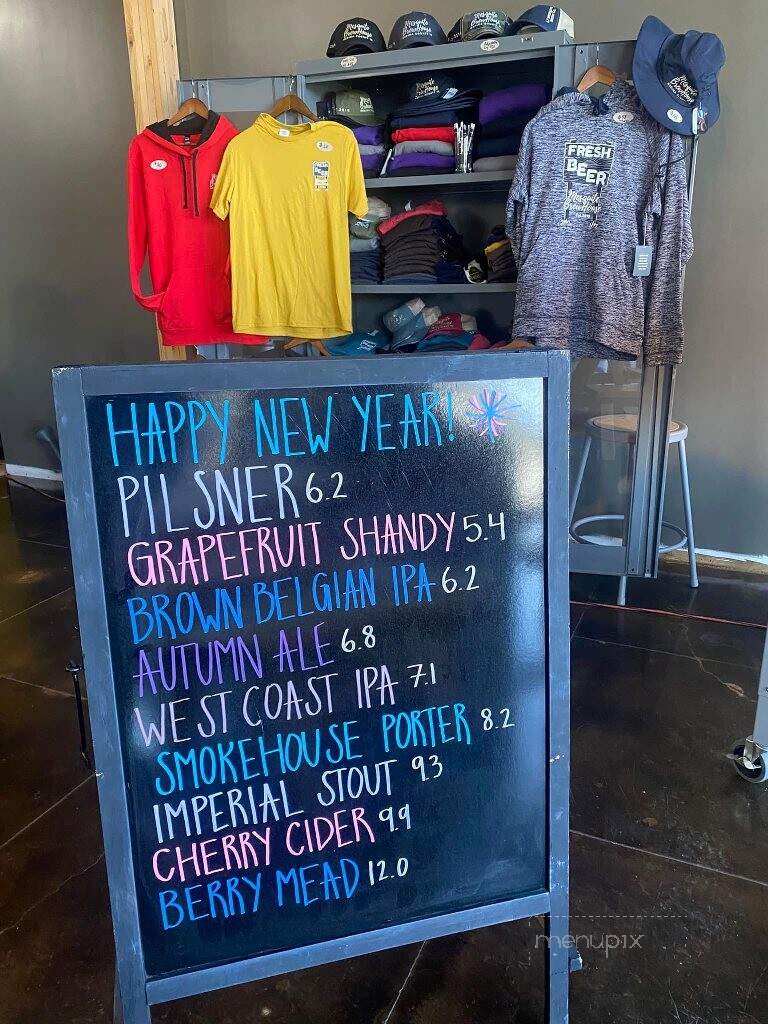 FRESH
BEER
Mosquito
BrewHouse
HAPPY NEW YEAR!
PILSNER 6.2
GRAPEFRUIT SHANDY 5.4
BROWN BELGIAN IPA 6.2
AUTUMN ALE 6.8
WEST COAST IPA 7.1
SMOKEHOUSE PORTER 8.2
IMPERIAL STOUT 9.3
CHERRY CIDER 9.9
BERRY MEAD 12.0
menupix